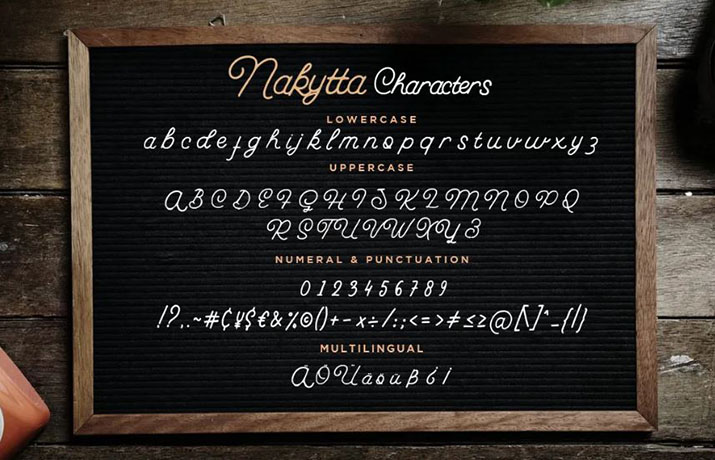 Nakytta Characters
LOWERCASE
abcdefghijklmnopqrstuvwxyz
UPPERCASE
ABCDEFGHIJKLMNOPQ
RSTUVWXYZ
NUMERAL & PUNCTUATION
0123456789
!?..~#₵¥$€&%©()+-×÷/:;<=>≠≤≥@[\]^_{|}
MULTILINGUAL
ÄÖÜäöüßói